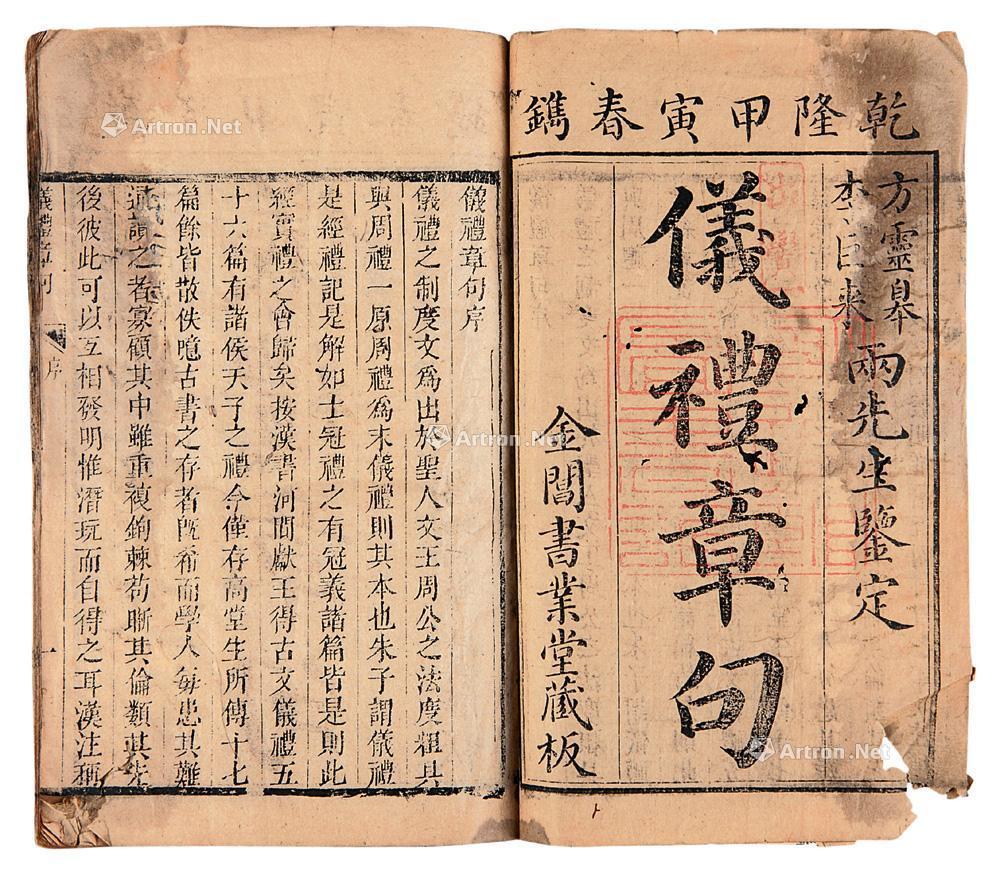 乾隆甲寅春鐫
方靈皋
李巨來
兩先生鑒定
儀禮章句
金閶書業堂藏板
儀禮章句序
儀禮之制度文為出於聖人文王周公之法度粗具
與周禮一原周禮為末儀禮則其本也朱子謂儀禮
是經禮記是解如士冠禮之有冠義諸篇皆是則此
經實禮之會歸矣按漢書河間獻王得古文儀禮五
十六篇有諸侯天子之禮今僅存高堂生所傳十七
篇餘皆散佚噫古書之存者既希而學人每患其難
讀之者寡顧其中雖重複鉤棘苟晰其倫類其先
後彼此可以互相發明惟潛玩而自得之耳漢注稱
儀禮章句
序
一
Artron.Net
Artron.Net
Artron.Net
Artron.Net
Artron.Net